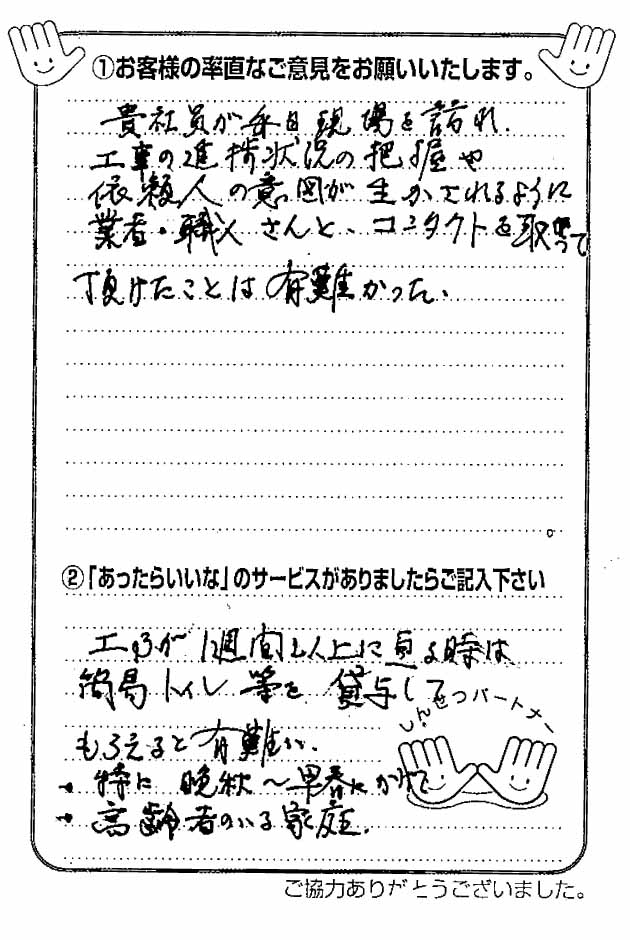 ①お客様の率直なご意見をお願いいたします。
貴社員が毎日現場を訪れ、
工事の進捗状況の把握や
依頼人の意図が生かされるように
業者・職人さんと、コンタクトを取って
頂けたことは有難かった。
②「あったらいいな」のサービスがありましたらご記入下さい
工事が1週間以上に亘る時は
簡易トイレ等を貸与して
もらえると有難い。
→特に晩秋〜早春にかけて
→高齢者のいる家庭。
しんせつパートナー
ご協力ありがとうございました。